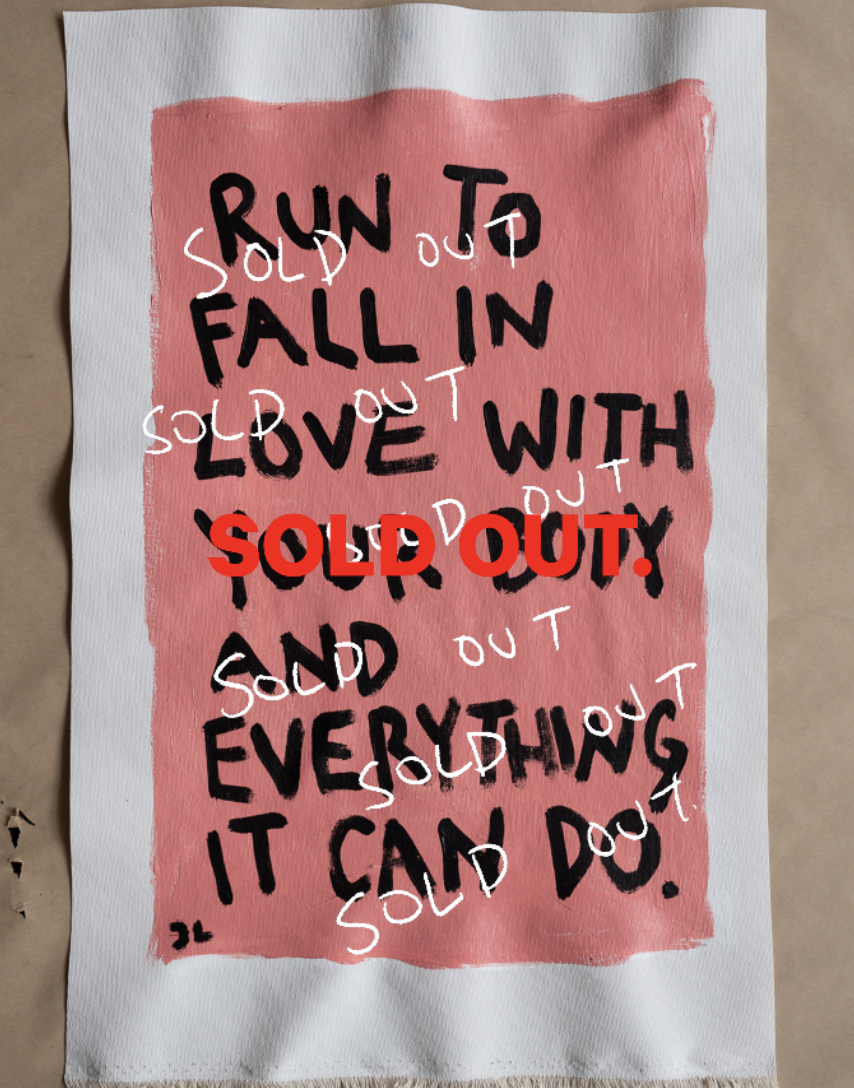 RUN TO
SOLD OUT
FALL IN
SOLD OUT
LOVE WITH
SOLD OUT
YOUR BODY
SOLD OUT.
AND
SOLD OUT
EVERYTHING
SOLD OUT
IT CAN DO.
SOLD OUT.
JL